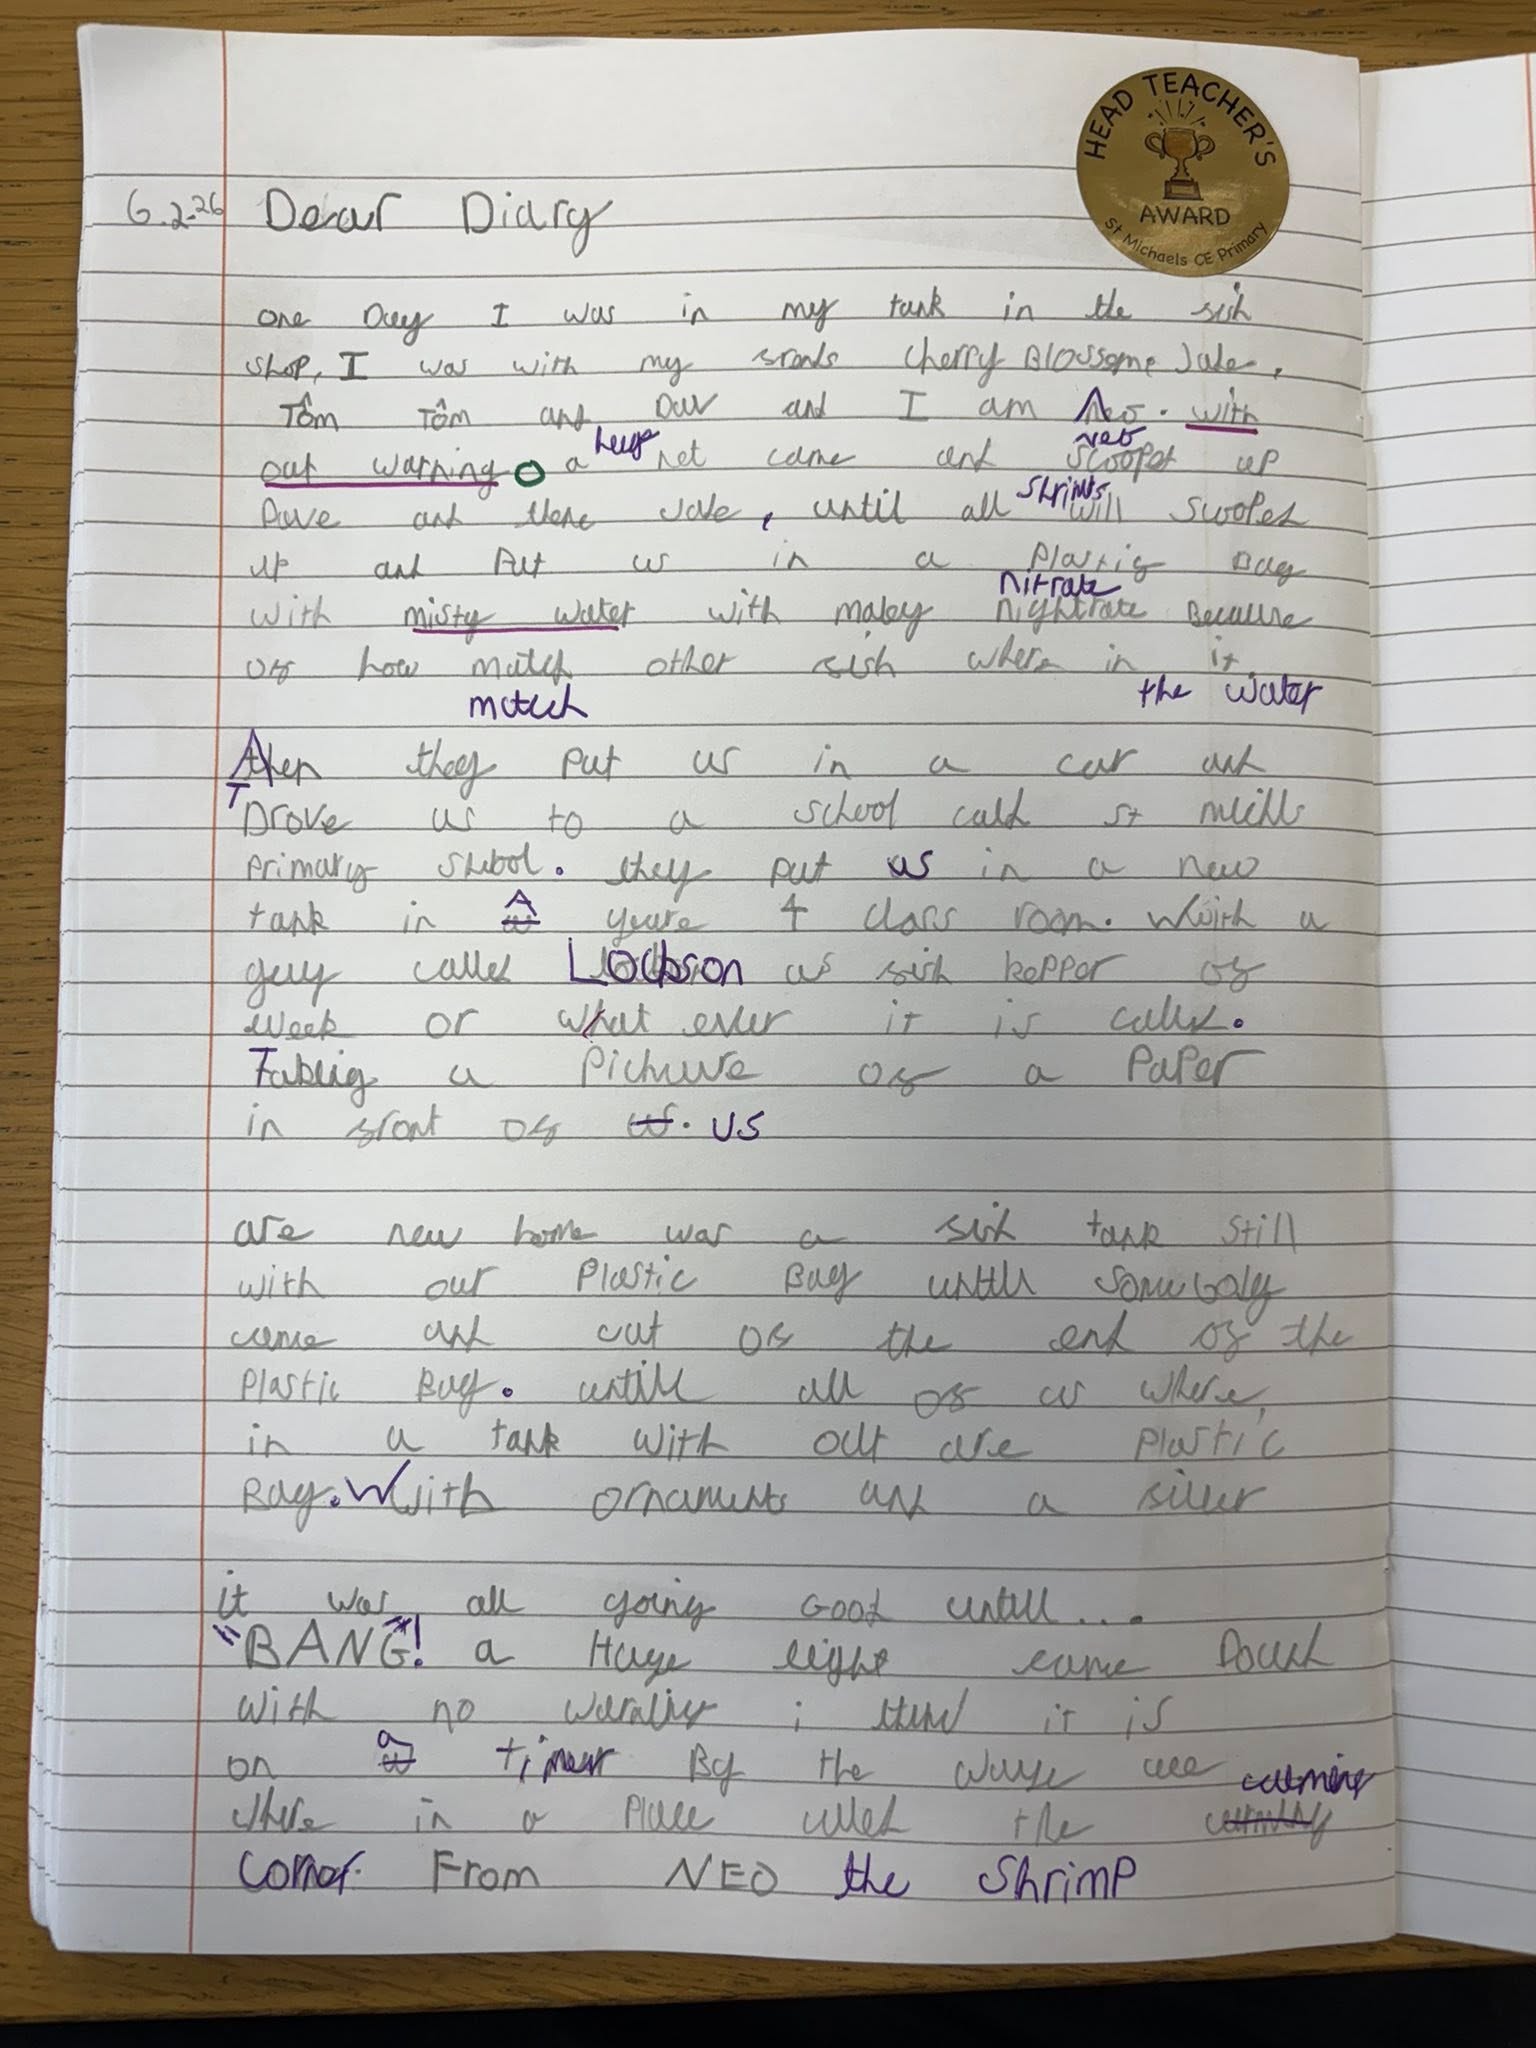 HEAD TEACHER'S
AWARD
St Michaels CE Primary
6.2.26 Dear Diary
one Day I was in my tank in the fish
shop, I was with my frends Cherry Blossome Jade,
Tôm Tôm and Dav and I am Neo. with
Neo
out warning a huge net came and scooped up
Dave and thene Jade, until all shrimps will swooped
up and Put us in a Plastig Bag
nitrate
with misty water with maby nightrate Because
of how mutch other fish where in it
mutch the water
Then they put us in a car and
Drove us to a school calld st
primary shool. they put us in a new
tank in A yeare 4 class room. With a
guy called as fish kepper of
week or what ever it is called.
Taking a Pichure of a PaPer
in front of us. us
are new home was a fish tank still
with our Plastic Bag untill somebody
came and cut of the end of the
Plastic Bag. untill all of us where,
in a tank with out are Plastic
Bag. With ornaments and a filter
it was all going Good untill....
"BANG"! a Huge light came Down
with no i it is
on a timer By the waye we calming
where in a Place called the
Corner. From NEO the ShrimP